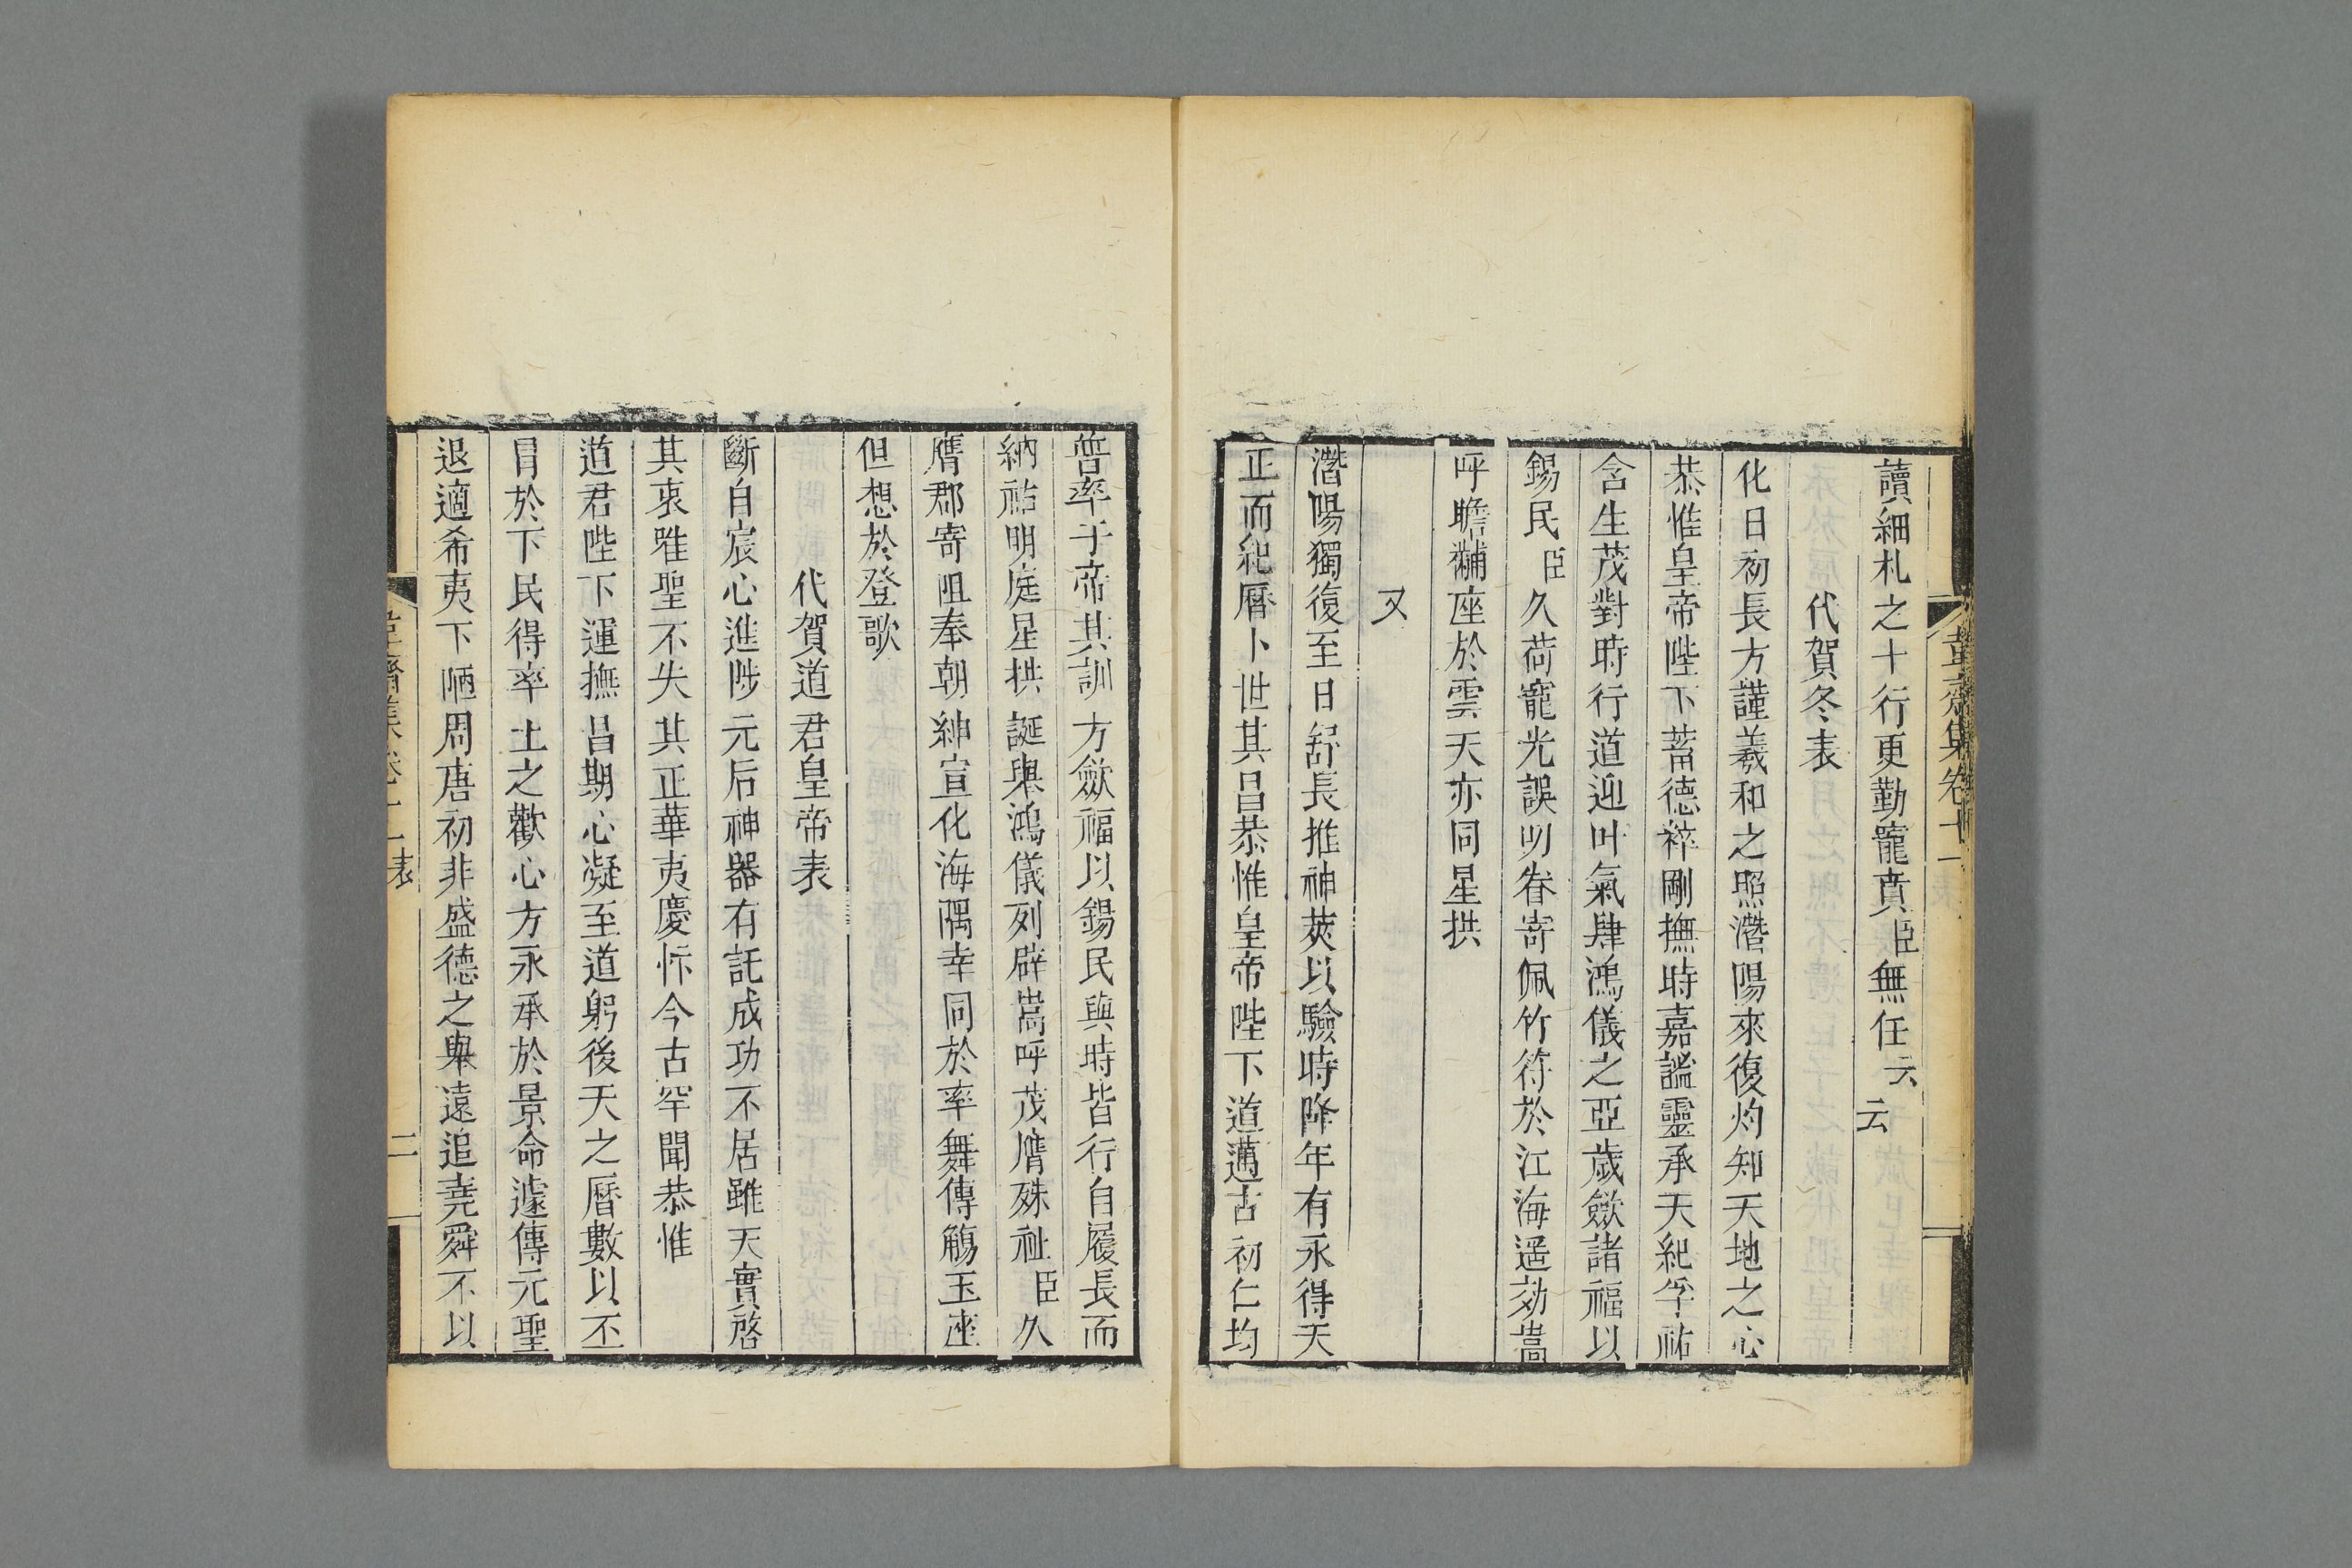 韋齋集卷十一
讀細札之十行更勤寵賁臣無任云云
代賀冬表
化日初長方謹羲和之照潛陽來復灼知天地之心
恭惟皇帝陛下蓄德粹剛撫時嘉謐靈承天紀孚祐
含生茂對時行道迎叶氣肆鴻儀之亞歲歛諸福以
錫民臣久荷寵光誤叨眷寄佩竹符於江海遥効嵩
呼瞻黼座於雲天亦同星拱
又
潛陽獨復至日舒長推神莢以驗時降年有永得天
正而紀曆卜世其昌恭惟皇帝陛下道邁古初仁均
普率于帝其訓方歛福以錫民與時皆行自履長而
納祜明庭星拱誕舉鴻儀列辟嵩呼茂膺殊祉臣久
膺郡寄阻奉朝紳宣化海隅幸同於率舞傳觴玉座
但想於登歌
代賀道君皇帝表
斷自宸心進陟元后神器有託成功不居雖天實啓
其衷雅聖不失其正華夷慶忭今古罕聞恭惟
道君陛下運撫昌期心凝至道躬後天之曆數以丕
冒於下民得率土之歡心方永承於景命遽傳元聖
退適希夷下陋周唐初非盛德之舉遠追堯舜不以
韋齋集卷十一 表 二